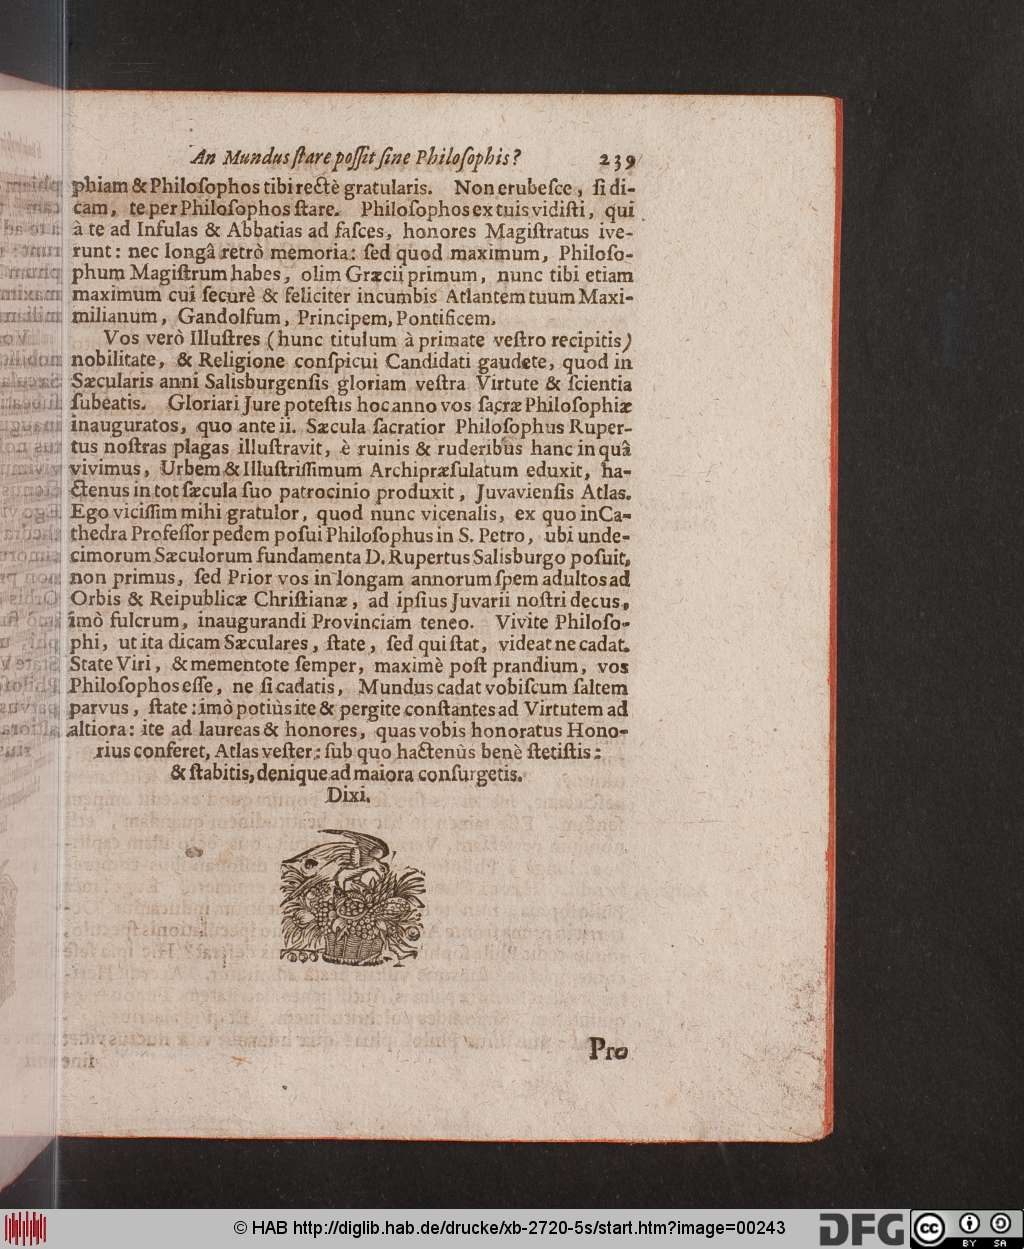 An Mundus ſtare poſſit ſine Philoſophis? 239
phiam & Philoſophos tibi rectè gratularis. Non erubeſce, ſi di-
cam, te per Philoſophos ſtare. Philoſophos ex tuis vidiſti, qui
à te ad Infulas & Abbatias ad faſces, honores Magiſtratus ive-
runt: nec longâ retrò memoria: ſed quod maximum, Philoſo-
phum Magiſtrum habes, olim Græcii primum, nunc tibi etiam
maximum cui ſecurè & feliciter incumbis Atlantem tuum Maxi-
milianum, Gandolfum, Principem, Pontificem.
Vos verò Illuſtres (hunc titulum à primate veſtro recipitis)
nobilitate, & Religione conſpicui Candidati gaudete, quod in
Sæcularis anni Salisburgenſis gloriam veſtra Virtute & ſcientia
ſubeatis. Gloriari Jure poteſtis hoc anno vos ſacræ Philoſophiæ
inauguratos, quo ante ii. Sæcula ſacratior Philoſophus Ruper-
tus noſtras plagas illuſtravit, è ruinis & ruderibus hanc in quâ
vivimus, Urbem & Illuſtriſſimum Archipræſulatum eduxit, ha-
ctenus in tot ſæcula ſuo patrocinio produxit, Juvavienſis Atlas.
Ego viciſſim mihi gratulor, quod nunc vicenalis, ex quo in Ca-
thedra Profeſſor pedem poſui Philoſophus in S. Petro, ubi unde-
cimorum Sæculorum fundamenta D. Rupertus Salisburgo poſuit,
non primus, ſed Prior vos in longam annorum ſpem adultos ad
Orbis & Reipublicæ Chriſtianæ, ad ipſius Juvarii noſtri decus,
imò fulcrum, inaugurandi Provinciam teneo. Vivite Philoſo-
phi, ut ita dicam Sæculares, ſtate, ſed qui ſtat, videat ne cadat.
State Viri, & mementote ſemper, maximè poſt prandium, vos
Philoſophos eſſe, ne ſi cadatis, Mundus cadat vobiſcum ſaltem
parvus, ſtate: imò potiùs ite & pergite conſtantes ad Virtutem ad
altiora: ite ad laureas & honores, quas vobis honoratus Hono-
rius conferet, Atlas veſter: ſub quo hactenùs benè ſtetiſtis:
& ſtabitis, denique ad maiora conſurgetis.
Dixi.
Pro
© HAB http://diglib.hab.de/drucke/xb-2720-5s/start.htm?image=00243
DFG
cc BY SA